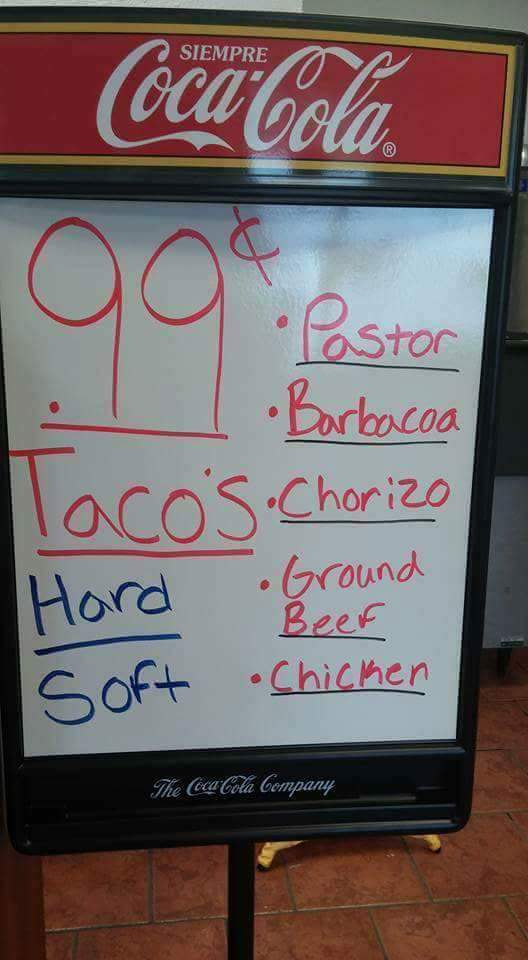 SIEMPRE
Coca-Cola®
.99¢
Taco's
Hard
Soft
• Pastor
• Barbacoa
• Chorizo
• Ground
Beef
• Chicken
The Coca-Cola Company